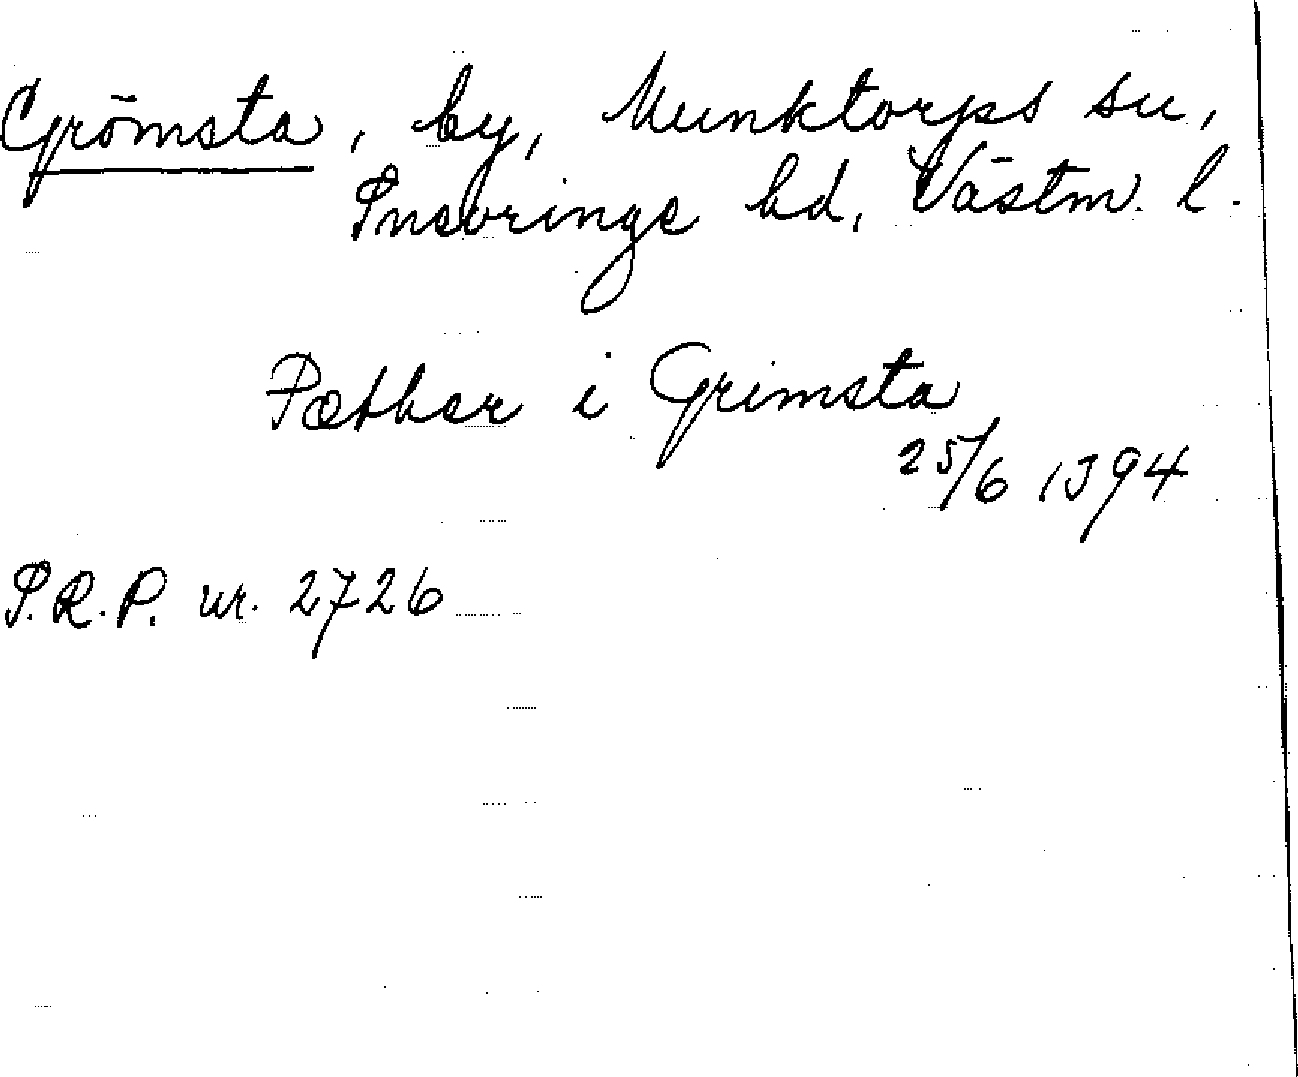 Grömsta, by, Munktorps sn,
Snevringe hd, Västm. l.
Pæthar i Grimsta
25/6 1394
S.R.P. nr. 2726